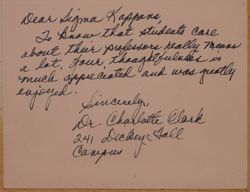 Dear Sigma Kappans,
To know that students care
about their professors really means
a lot. Your thoughtfulness is
much appreciated and was greatly
enjoyed.
Sincerely,
Dr. Charlotte Clark
241 Dickey Hall
Campus